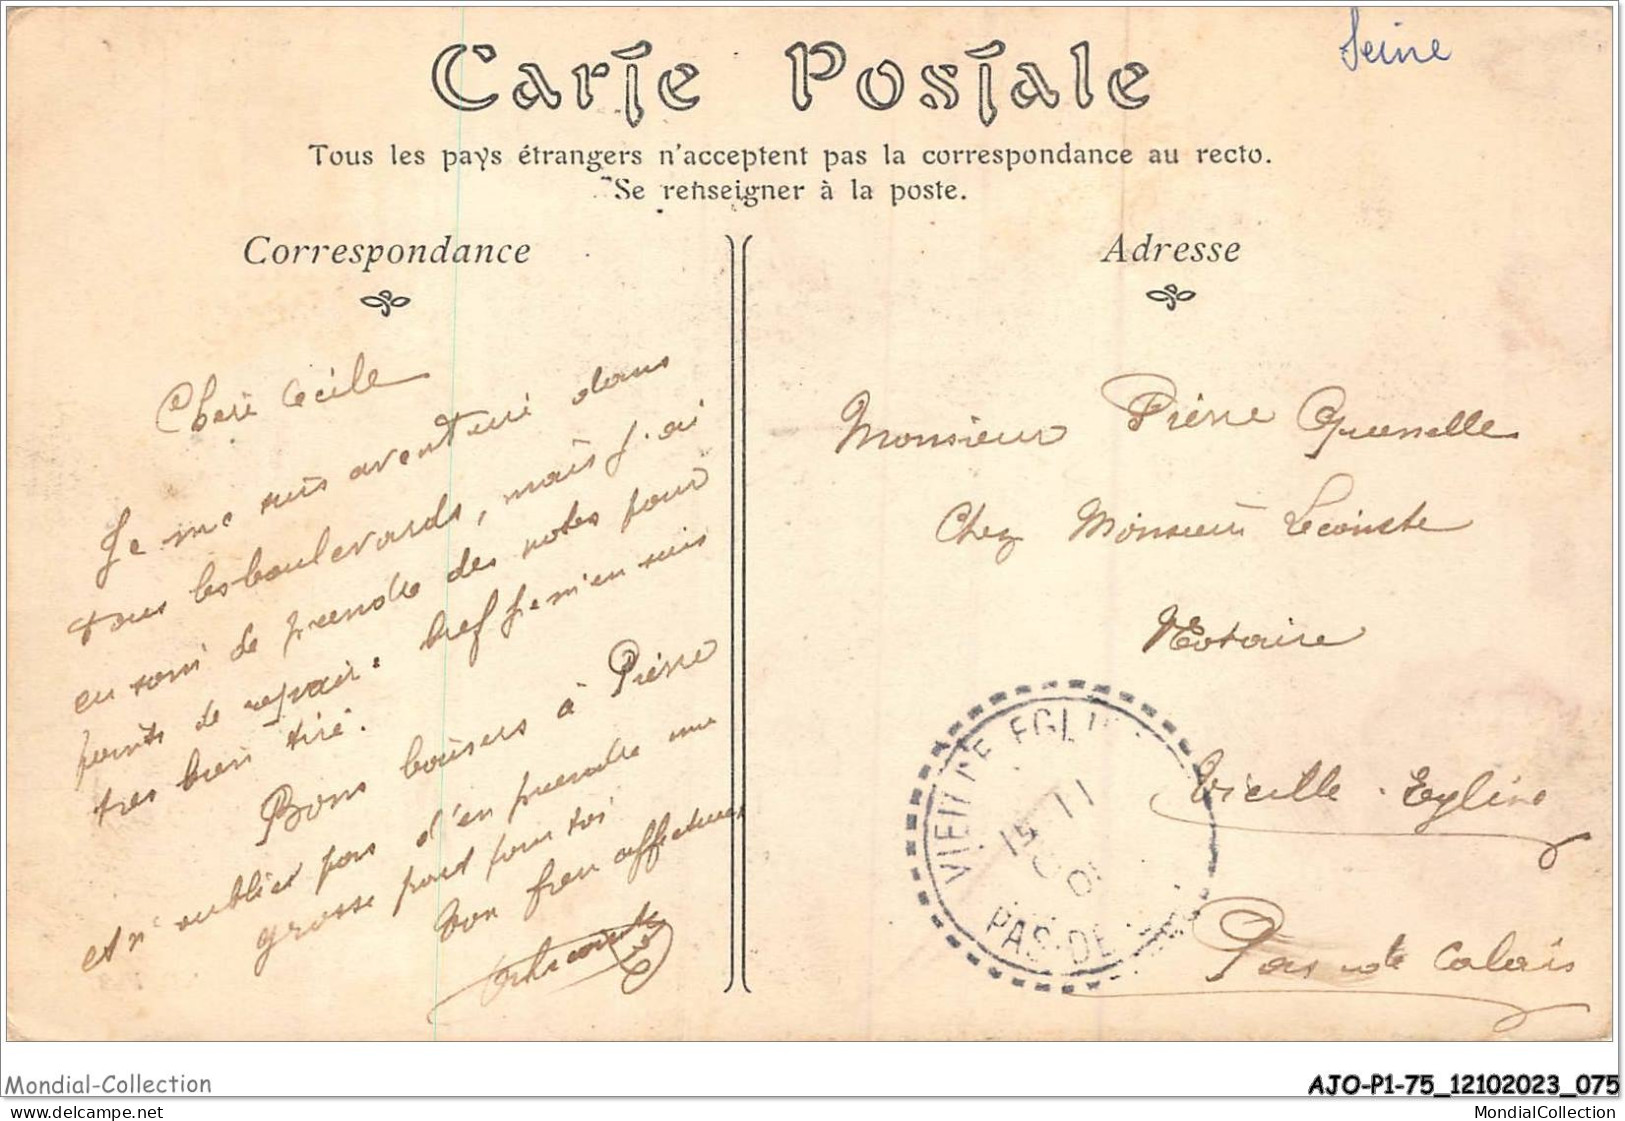 Seine
Carte Postale
Tous les pays étrangers n'acceptent pas la correspondance au recto.
Se renseigner à la poste.
Correspondance
Adresse
Cécile
Je me suis aventuré dans
tous les boulevards, mais j'ai
eu soin de prendre des notes pour
points de repair. bref je m'en suis
très bien tiré.
Bons baisers à Pierre
et n'oublies pas d'en prendre une
grosse part pour toi
Ton affectueux
Monsieur Pierre Quenelle
Chez Monsieur Lecointe
Notaire
Vieille-Eglise
Pas de Calais
PAS-DE
Mondial-Collection
AJO-P1-75_12102023_075
www.delcampe.net
MondialCollection